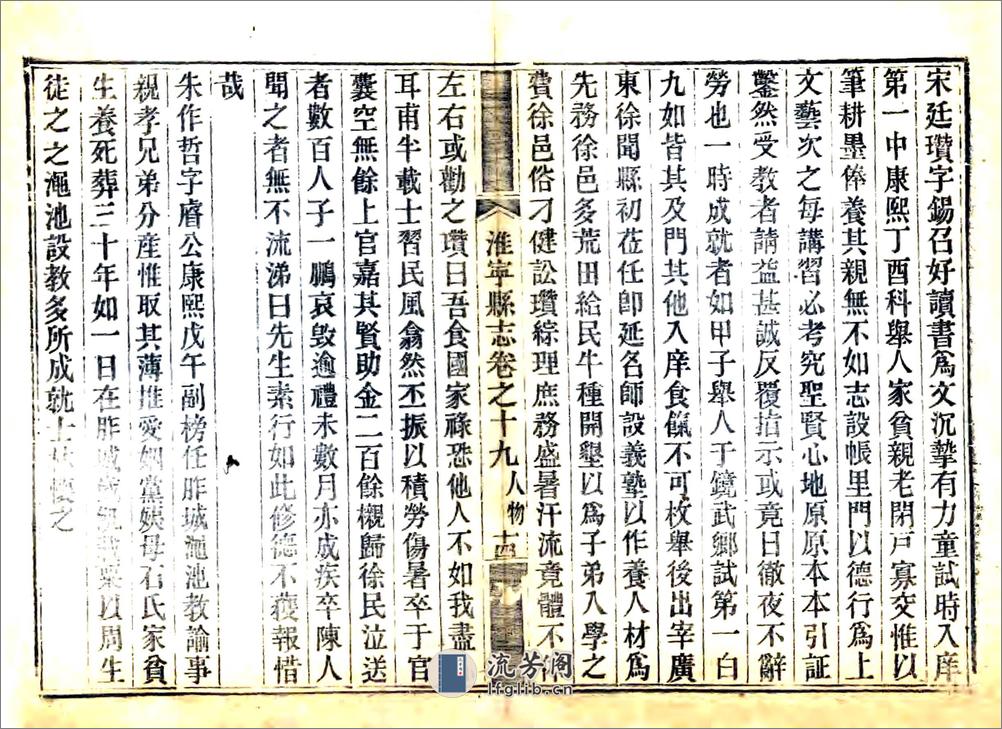 宋廷瓚字錫召好讀書爲文沉摯有力童試時入庠
第一中康熙丁酉科舉人家貧親老閉戸寡交惟以
筆耕墨俸養其親無不如志設帳里門以德行爲上
文藝次之每講習必考究聖賢心地原原本本引証
鑿然受教者請益甚誠反覆指示或竟日徹夜不辭
勞也一時成就者如甲子舉人于鏡武鄉試第一白
九如皆其及門其他入庠食餼不可枚舉後出宰廣
東徐聞縣初莅任卽延名師設義塾以作養人材爲
先務徐邑多荒田給民牛種開墾以爲子弟入學之
費徐邑俗刁健訟瓚綜理庶務盛暑汗流竟體不
淮寧縣志卷之十九 人物 十四
左右或勸之瓚曰吾食國家祿恐他人不如我盡
耳甫半載士習民風翕然丕振以積勞傷暑卒于官
囊空無餘上官嘉其賢助金二百餘櫬歸徐民泣送
者數百人子一鵬哀毀逾禮未數月亦成疾卒陳人
聞之者無不流涕曰先生素行如此修德不獲報惜
哉
朱作哲字膺公康熙戊午副榜任胙城澠池教諭事
親孝兄弟分産惟取其薄推愛姻黨娣母石氏家貧
生養死葬三十年如一日在胙城歲以周生
徒之之澠池設教多所成就士懷之
流芳阁
lfglib.cn